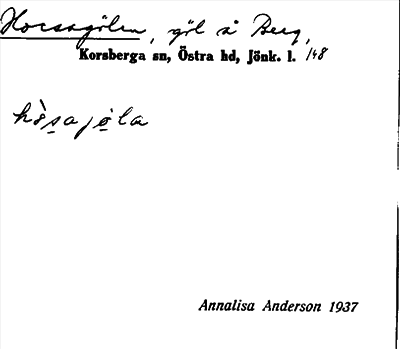 Horsagölen, göl å Berg,
Korsberga sn, Östra hd, Jönk. l. 148
hò̀s̲ajö̲la
Annalisa Anderson 1937